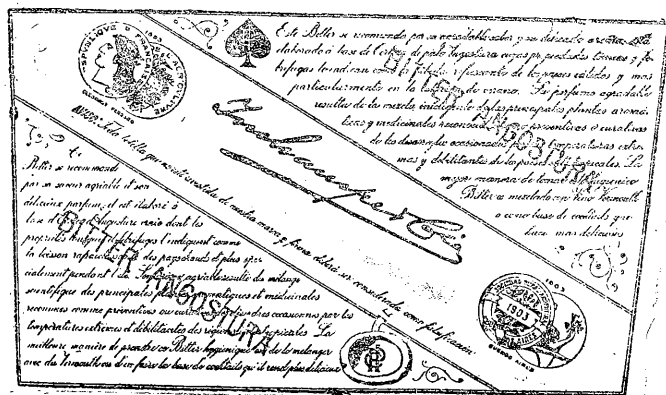 Este Bitter se recomienda por su agradable sabor y su delicado aroma. Está
elaborado à base de Corteza de palo Angostura cuyas propiedades tonicas y fe-
brifugas lo indican como la bebida refrescante de los paises calidos y mas
particularmente en la estacion de verano. Su perfume agradable
resulta de la mezcla inteligente de las principales plantas aroma-
ticas y medicinales reconocidas como preventivas o curativas
de los desarreglos ocasionados por las temperaturas extre-
mas y debilitantes de las regiones tropicales. La
mejor manera de tomar este higienico
Bitter es mezclado con Vino Vermouth
o como base de cocktails que
hace mas delicioso
BITTER ANGOSTURA
REPUBLIQUE FRANÇAISE
1903
AGRICULTURE
NOTA: Toda botella que no esté revestida de nuestra marca y firma deberá ser considerada como falsificación
Ce
Bitter se recommande
par sa saveur agréable et son
délicieux parfum, il est élaboré à
base d'écorce d'Angosture vraie dont les
propriétés toniques et fébrifuges l'indiquent comme
la boisson rapraîchissante des pays chauds et plus spé-
cialement pendant l'été. Son parfum agréable résulte du mélange
scientifique des principales plantes aromatiques et médicinales
reconnues comme préventives ou curatives des désordres occasionnés par les
températures extrêmes et débilitantes des régions tropicales. La
meilleure manière de prendre ce Bitter hygienique est de le mélanger
avec des Vermouths ou d'en faire la base de cocktails qu'il rend plus délicieux
BITTER ANGOSTURA
1903
1903
BUENOS AIRES